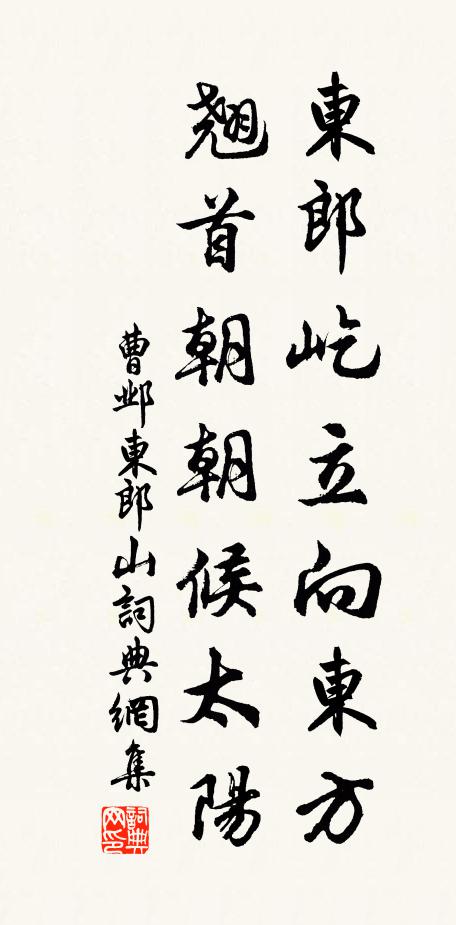 東郎屹立向東方
翹首朝朝候太陽
曹鄴東郎山詞典網集
詞典網印